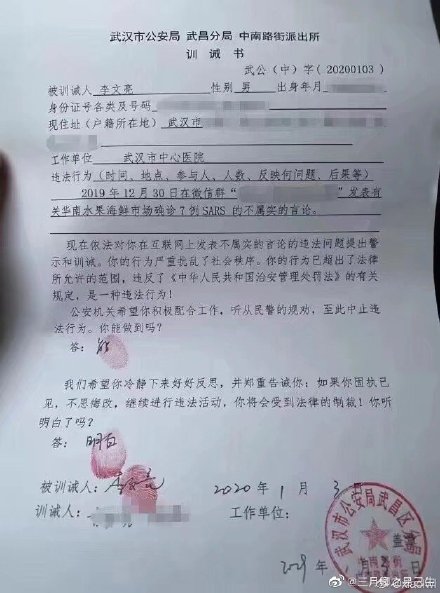 武汉市公安局 武昌分局 中南路街派出所
训 诫 书
武公（中）字（20200103）
被训诫人 李文亮 性别 男 出身年月
身份证号各类及号码
现住址（户籍所在地） 武汉市
工作单位 武汉市中心医院
违法行为（时间、地点、参与人、人数、反映何问题、后果等）
2019年12月30日在微信群“ ”发表有
关华南水果海鲜市场确诊7例SARS的不属实的言论。
现在依法对你在互联网上发表不属实的言论的违法问题提出警
示和训诫。你的行为严重扰乱了社会秩序。你的行为已超出了法律
所允许的范围，违反了《中华人民共和国治安管理处罚法》的有关
规定，是一种违法行为！
公安机关希望你积极配合工作，听从民警的规劝，至此中止违
法行为。你能做到吗？
答：能
我们希望你冷静下来好好反思，并郑重告诫你：如果你固执己
见，不思悔改，继续进行违法活动，你将会受到法律的制裁！你听
明白了吗？
答：明白
被训诫人：李文亮 2020年1月3日
训诫人： 工作单位：
武汉市公安局武昌区
盖章
年 月 日
@三月柳之是己生